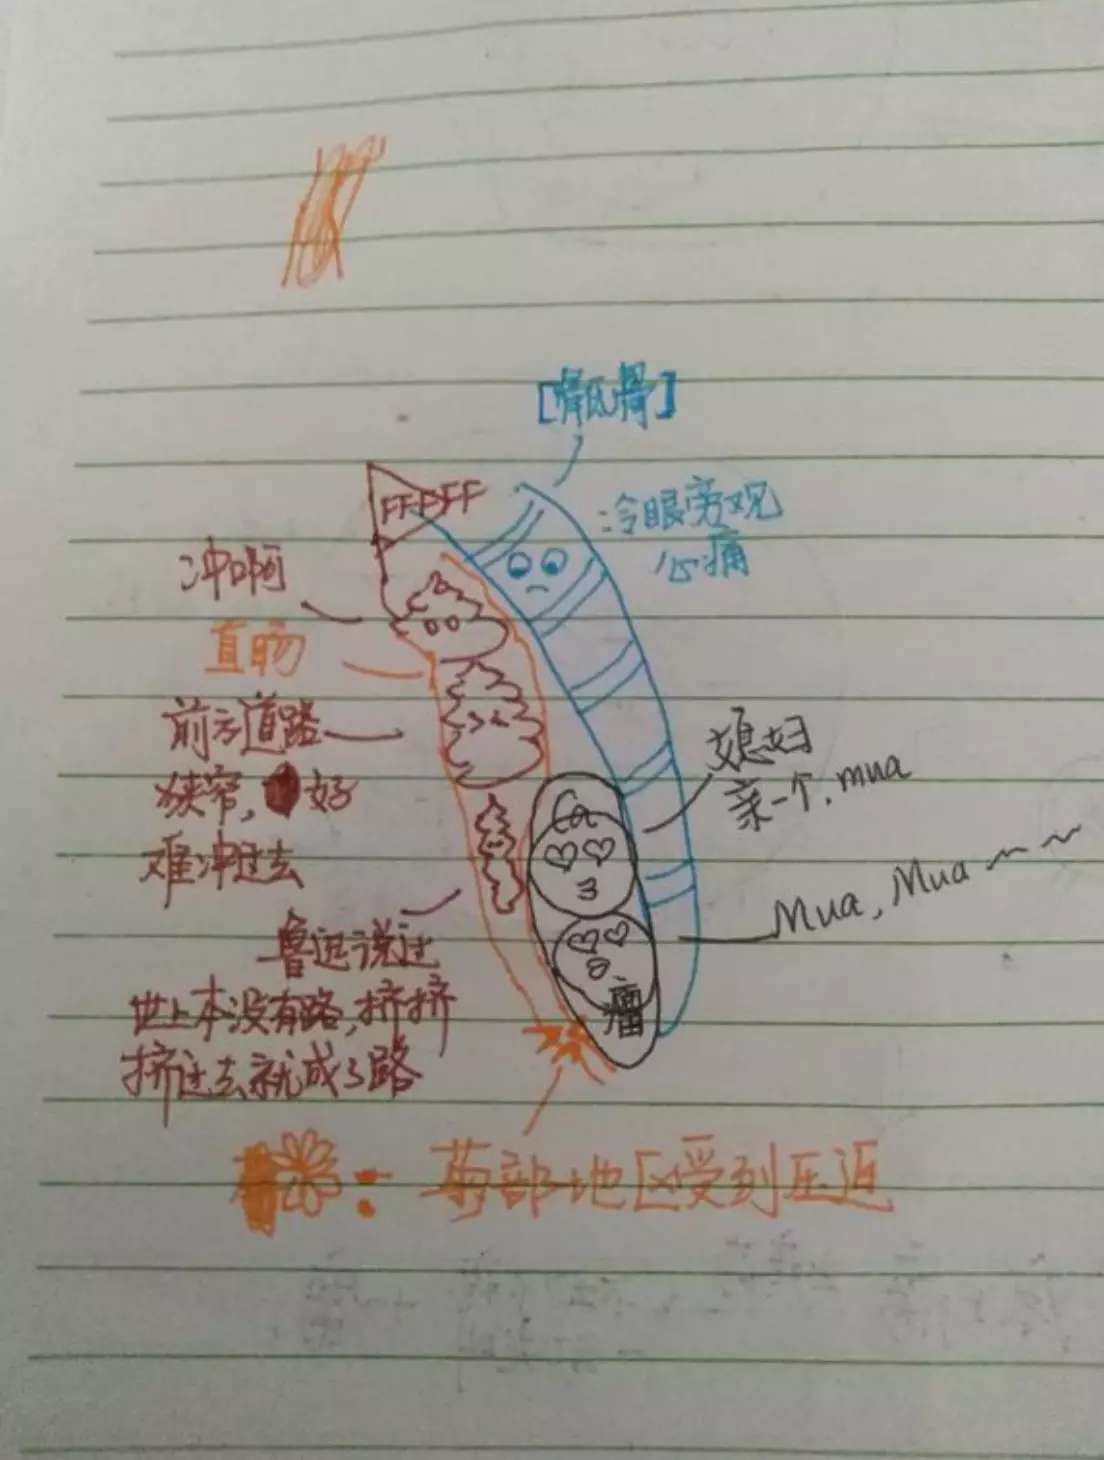 [骶骨]
冷眼旁观
心痛
FFPFF
冲啊
直肠
前方道路
狭窄，好
难冲过去
媳妇
亲一个，mua
Mua，Mua～～
鲁迅说过
世上本没有路，挤挤
挤过去就成了路
瘤
：菊部地区受到压迫